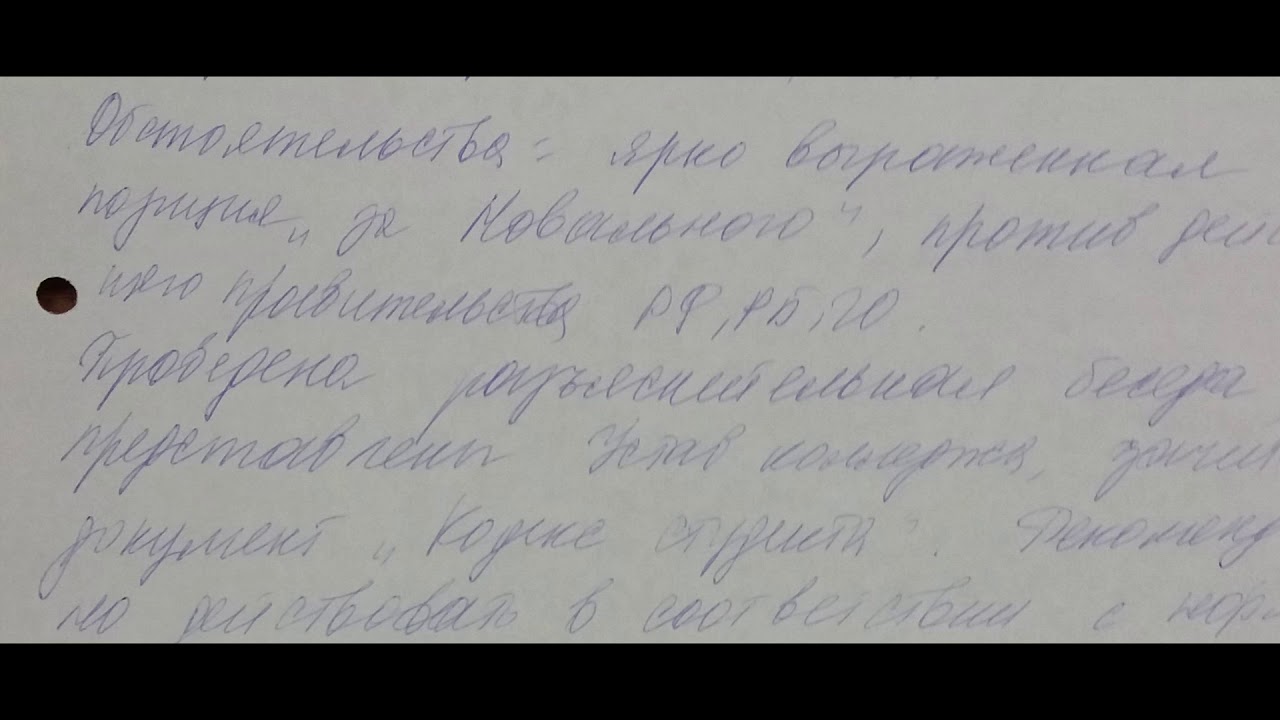 Обстоятельства: ярко выраженная
позиция „за Навального", против дей
щего правительства РФ, РБ, ГО.
Проведена разъяснительная беседа
представлены Устав колледжа, зачит
документ „Кодекс студента". Рекоменд
но действовать в соответствии с нор